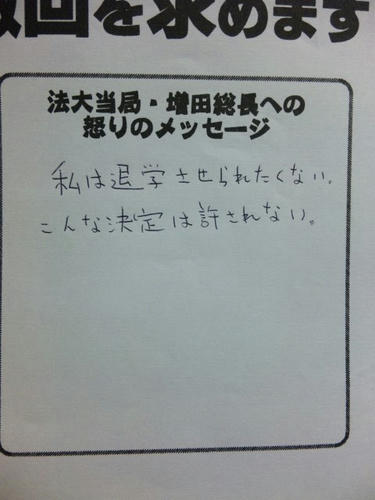 回を求めます
法大当局・増田総長への
怒りのメッセージ
私は退学させられたくない。
こんな決定は許されない。